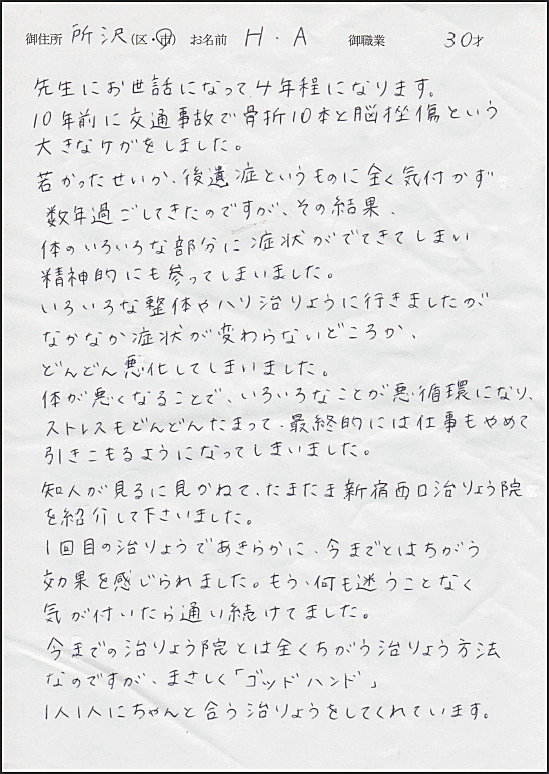 御住所 所沢(区・市) お名前 H・A 御職業 30才
先生にお世話になって4年程になります。
10年前に交通事故で骨折10本と脳挫傷という
大きなケガをしました。
若かったせいか、後遺症というものに全く気付かず
数年過ごしてきたのですが、その結果、
体のいろいろな部分に症状がでてきてしまい
精神的にも参ってしまいました。
いろいろな整体やハリ治りょうに行きましたが
なかなか症状が変わらないどころか、
どんどん悪化してしまいました。
体が悪くなることで、いろいろなことが悪循環になり、
ストレスもどんどんたまって、最終的には仕事もやめて
引きこもるようになってしまいました。
知人が見るに見かねて、たまたま新宿西口治りょう院
を紹介して下さいました。
1回目の治りょうであきらかに、今までとはちがう
効果を感じられました。もう、何も迷うことなく
気が付いたら通い続けてました。
今までの治りょう院とは全くちがう治りょう方法
なのですが、まさしく「ゴッドハンド」
1人1人にちゃんと合う治りょうをしてくれています。